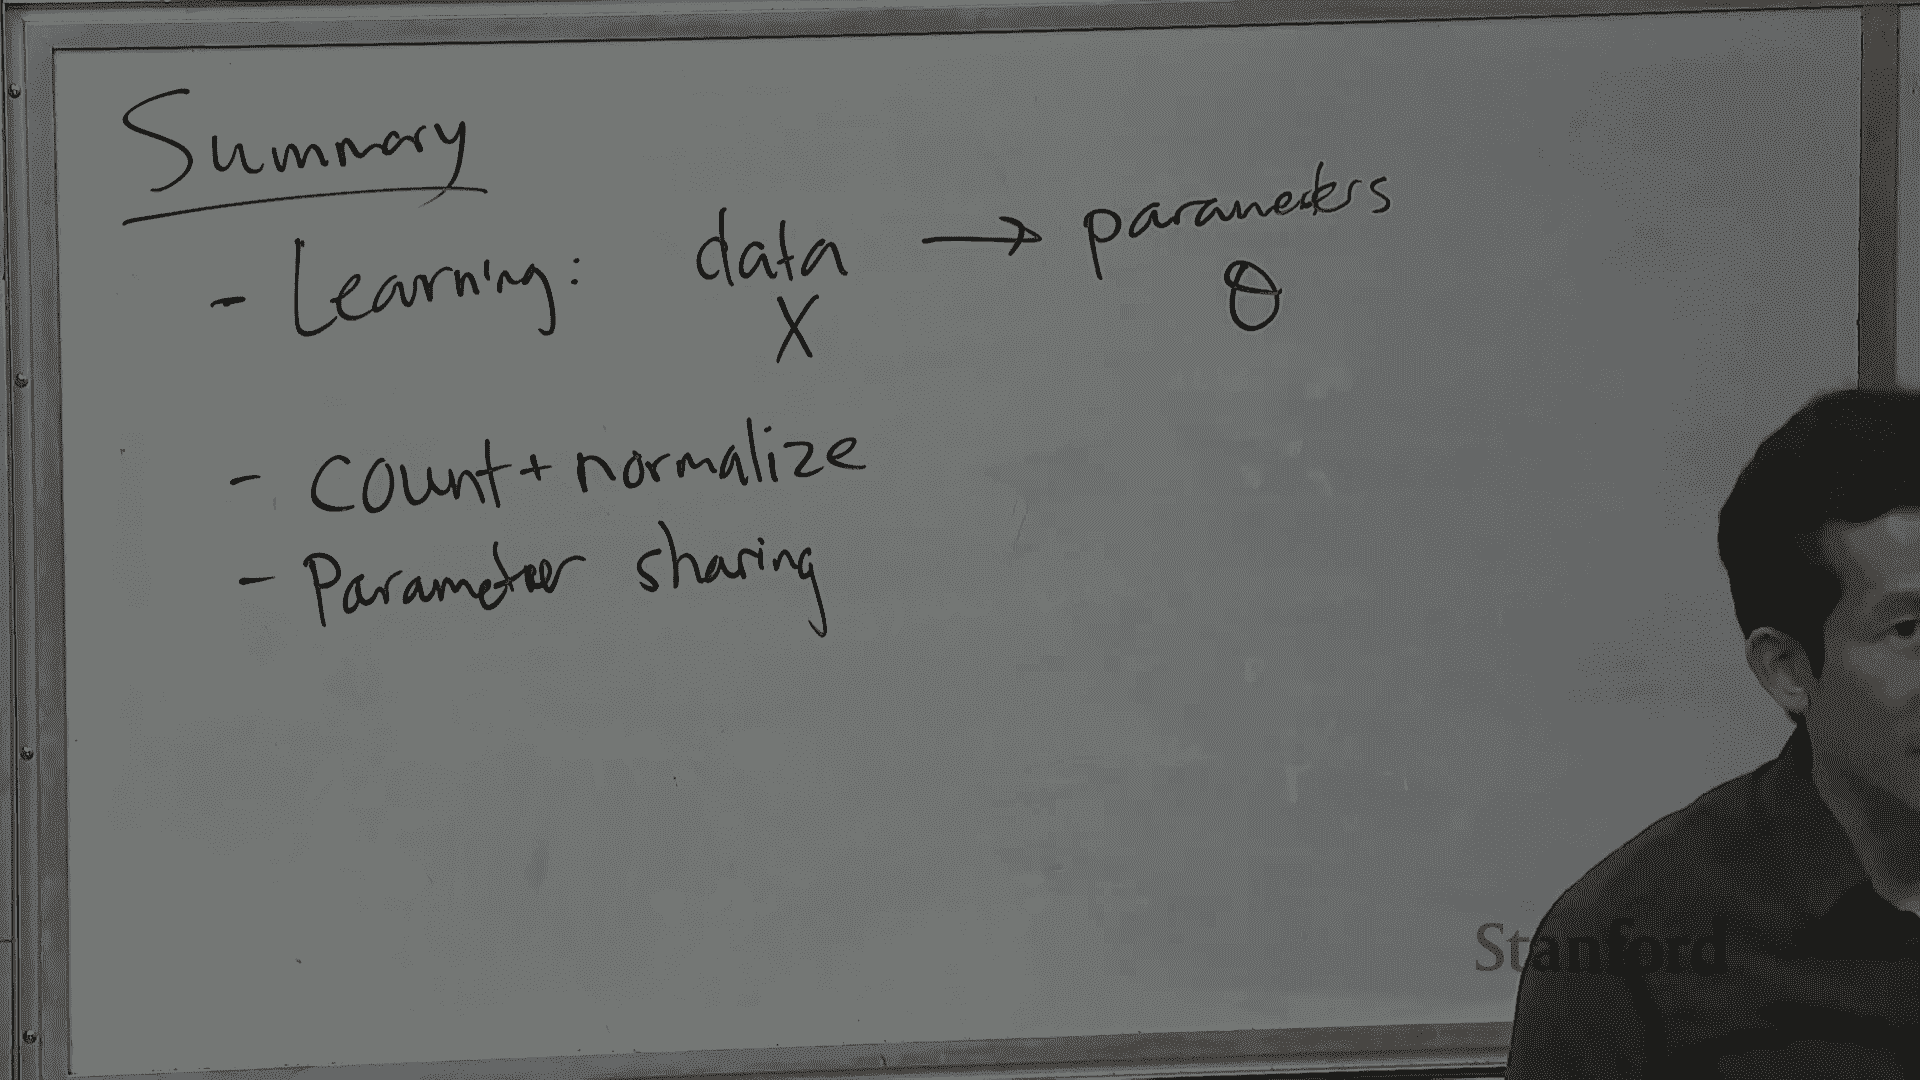 Summary
- Learning: data → parameters
X θ
- Count + normalize
- Parameter sharing
Stanford